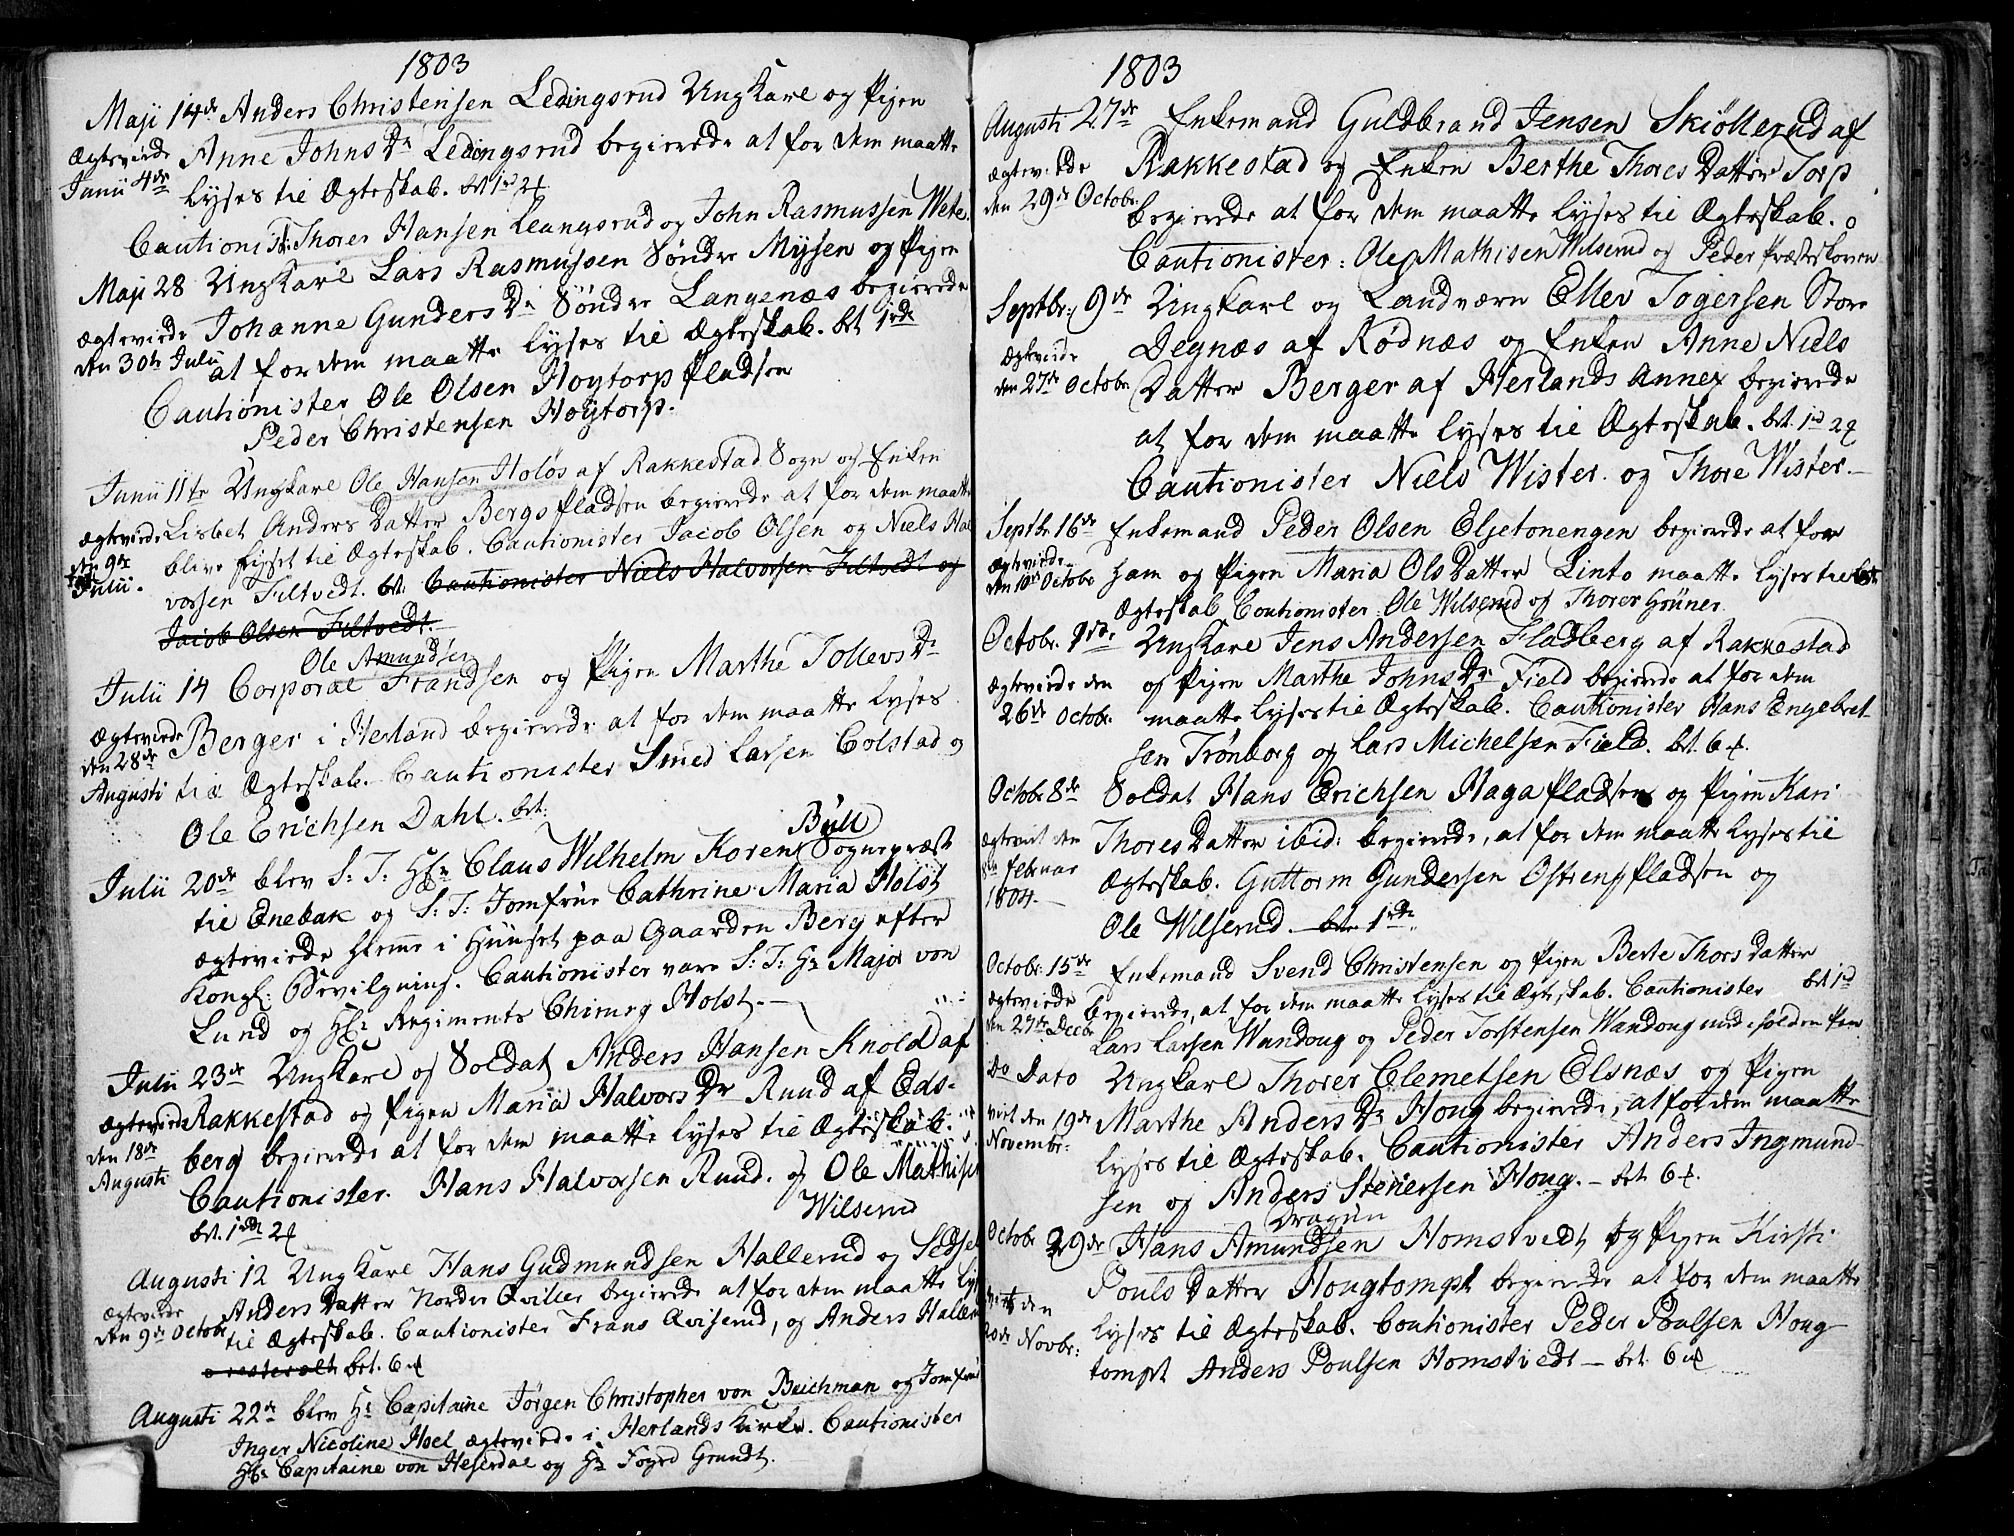 1803
Maji 14de Anders Christensen Ledingsrud UngKarl og Pigen
Ægteviede Anne Johns Dr Ledingsrud begierede at for dem maatte
Junii 4de lyses til Ægteskab. bet 1rd 2
Cautionist: Thorer Hansen Leangsrud og John Rasmussen Wete
Maji 28 UngKarl Lars Rasmussen Søndre Mysen og Pigen
ægteviede Johanne Gunders Dr Søndre Langenæs begierede
den 30te Julii at for dem maatte lyses til Ægteskab. bet 1rdr
Cautionister Ole Olsen Hoytorp pladsen
Peder Christensen Hoÿtorp.
Junii 11te UngKarl Ole Hansen Holøs af Rakkestad Sogn og Enken
ægteviede Lisbet Anders Datter Bergs pladsen begierede at for dem maatte
den 9de blive lyset til Ægteskab. Cautionister Jacob Olsen og Niels Hal
Julii. vorsen Filtvedt. bet. Cautionister Niels Halvorsen Filtvedt og
Jacob Olsen Filtvedt.
Ole Amundsen
Julii 14 Corporal Frandsen og Pigen Marthe Tollevs Dr
ægteviede Berger i Herland begierede at for dem maatte lyses
den 28de
Augusti til Ægteskab. Cautionister Smed Larsen Colstad og
Ole Erichsen Dahl. bet:
Bull
Julii 20de blev S: T: Hr Claus Wilhelm Koren Sognepræst
til Enebak og S: T: Jomfrue Cathrine Maria Holst
ægteviede hiemme i Huuset paa Gaarden Berg efter
Kongl: Bevilgning. Cautionister vare S: T: Hr Major von
Lund og Hr Regiments Chirurg Holst.
Julii 23de UngKarl og Soldat Anders Hansen Knold af
ægteviede Rakkestad og Pigen Maria Halvors Dr Ruud af Eds-
den 18de berg begierede at for dem maatte lyses til Ægteskab.
Augusti Cautionister. Hans Halvorsen Ruud. og Ole Mathisen
Wilserud
bet. 1rdr 2
Augusti 12 UngKarl Hans Gudmundsen Hallerud og Sidsel
ægteviede Anders Datter Nordre Qviller begierede at for dem maatte lyses
den 9de Octobr til Ægteskab. Cautionister Frans Qviserud, og Anders Hallerud
bet. 6
Augusti 22de blev Hr Capitaine Jörgen Christopher von Beichman og Jomfrue
Inger Nicoline Hoel ægteviede i Herlands Kirke. Cautionister
Hr Capitaine von Heserdal og Hr Foged Grundt.
1803
Augusti 27de Enkemand Guldbrand Jensen Skiøllerud af
ægteviede Rakkestad og Enken Berthe Thores Datter Torp
den 29de Octobr. begierede at for dem maatte lyses til Ægteskab.
Cautionister: Ole Mathisen Wilserud og Peder Præsteskoven
Septbr: 9de Ungkarl og Landværn Ellev Togersen Store
ægteviede Degnæs af Rødnæs og Enken Anne Niels
den 27de Octobr Datter Berger af Herlands Annex begierede
at for dem maatte lyses til Ægteskab. bet. 1rd 2
Cautionister Niels Wister. og Thore Wister.
Septbr 16de Enkemand Peder Olsen Elsetonengen begierede at for
ægteviede ham og Pigen Maria Ols Datter Linto maatte lyses til
den 10de Octobr Ægteskab Cautionister Ole Wilserud og Thorer Grüner.
Octobr. 1ste UngKarl Jens Andersen Fladberg af Rakkestad
ægteviede den og Pigen Marthe Johns Dr Field begierede at for dem
26de Octobr. maatte lyses til Ægteskab. Cautionister Hans Engebret-
sen Trönborg og Lars Michelsen Field. bet. 6
Octobr 8de Soldat Hans Erichsen Haga pladsen og Pigen Kari
ægteviet den Thores Datter ibid: begierede, at for dem maatte lyses til
Februar Ægteskab. Guttorm Gundersen Ostreng pladsen og
1804. Ole Wilserud. bet. 1rdr.
Octobr: 15de Enkemand Svend Christensen og Pigen Berte Thors Datter
ægteviede begierede, at for dem maatte lyses til Ægteskab. Cautionister bet 1rd
den 27de Decbr Lars Larsen Wandoug og Peder Torstensen Wandoug
Do Dato Ungkarl Thorer Clemetsen Elsnæs og Pigen
viet den 19de Marthe Anders Dr Houg begierede, at for dem maatte
Novembr: lyses til Ægteskab. Cautionister Anders Ingmund-
sen og Anders Stenersen Houg. - bet. 6
Dragun
Octobr 29de Hans Amundsen Homstvedt og Pigen Kirsti
Pouls Datter Hougtompt begierede at for dem maatte
viet den
20de Novbr: lyses til Ægteskab. Cautionister Peder Poulsen Houg-
tompt Anders Poulsen Homstvedt - bet. 6